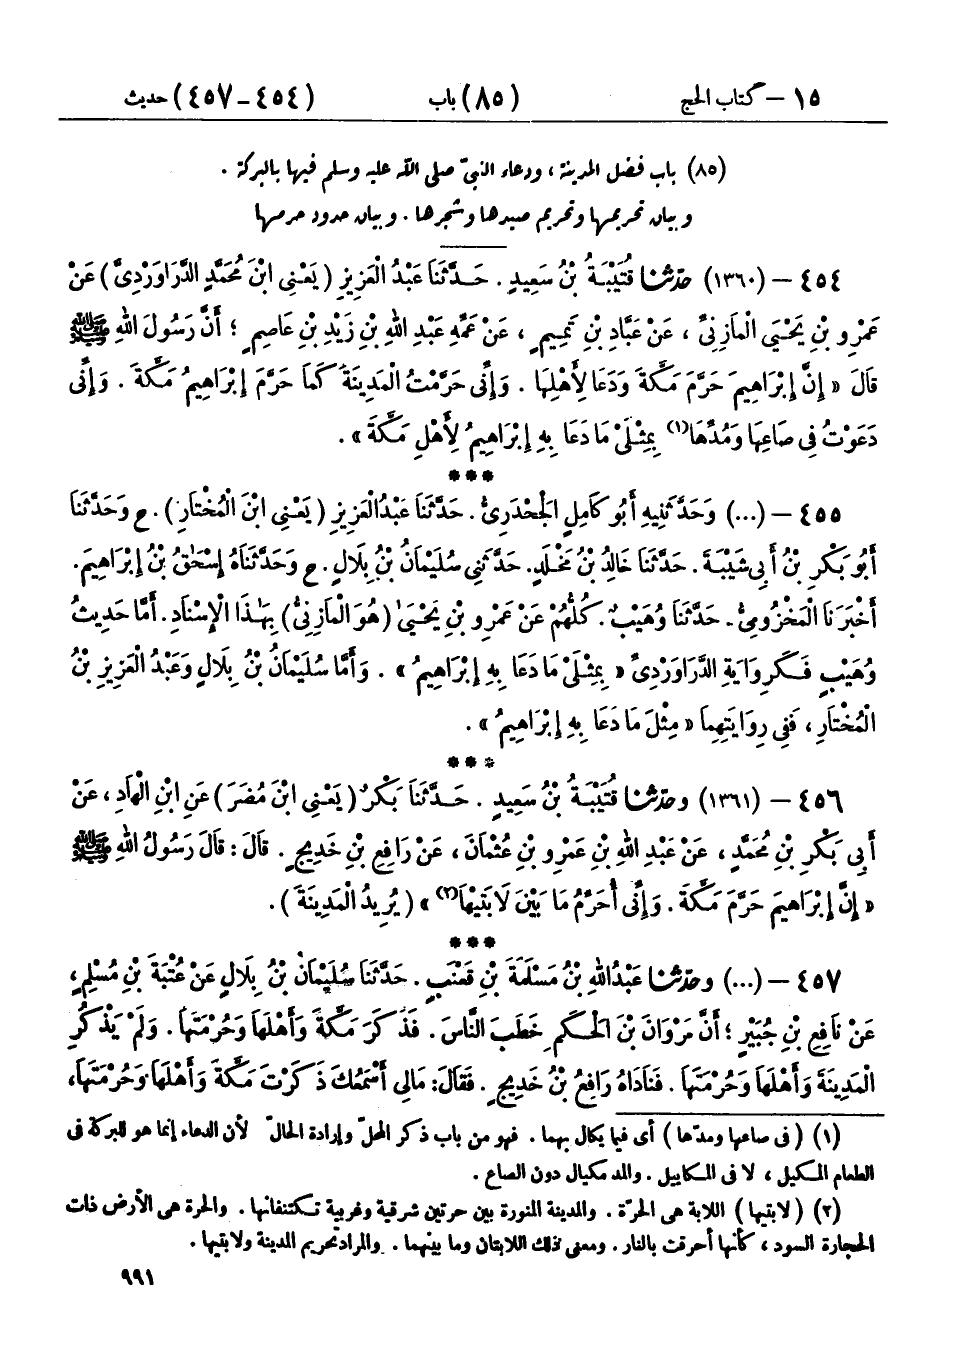 ١٥ – كتاب الحج (٨٥) باب (٤٥٤-٤٥٧) حديث
(٨٥) باب فضل المدينة ، ودعاء النبيّ صلى الله عليه وسلم فيها بالبركة .
وبيان تحريمها وتحريم صيدها وشجرها . وبيان حدود حرمها
٤٥٤ – (١٣٦٠) حدّثنا قُتَيْبَةُ بْنُ سَعِيدٍ . حَدَّثَنَا عَبْدُ الْعَزِيزِ ( يَعْنِي ابْنَ مُحَمَّدٍ الدَّرَاوَرْدِىَّ ) عَنْ
عَمْرِو بْنِ يَحْيَىَ الْمَازِنِىِّ ، عَنْ عَبَّادِ بْنِ تَمِيمٍ ، عَنْ عَمِّهِ عَبْدِ اللهِ بْنِ زَيْدِ بْنِ عَاصِمٍ ؛ أَنَّ رَسُولَ اللهِ ﷺ
قَالَ « إِنَّ إِبْرَاهِيمَ حَرَّمَ مَكَّةَ وَدَعَا لِأَهْلِهَا . وَإِنِّى حَرَّمْتُ الْمَدِينَةَ كَمَا حَرَّمَ إِبْرَاهِيمُ مَكَّةَ . وَإِنِّى
دَعَوْتُ فِى صَاعِهَا وَمُدِّهَا(١) بِمِثْلَىْ مَا دَعَا بِهِ إِبْرَاهِيمُ لِأَهْلِ مَكَّةَ » .
***
٤٥٥ – (...) وَحَدَّثَنِيهِ أَبُو كَامِلٍ الْجَحْدَرِىُّ . حَدَّثَنَا عَبْدُالْعَزِيزِ ( يَعْنِي ابْنَ الْمُخْتَارِ ) . ح وَحَدَّثَنَا
أَبُو بَكْرِ بْنُ أَبِي شَيْبَةَ . حَدَّثَنَا خَالِدُ بْنُ مَخْلَدٍ. حَدَّثَنِي سُلَيْمَانُ بْنُ بِلَالٍ . ح وَحَدَّثَنَاهُ إِسْحَٰقُ بْنُ إِبْرَاهِيمَ.
أَخْبَرَنَا الْمَخْزُومِىُّ . حَدَّثَنَا وُهَيْبٌ . كُلُّهُمْ عَنْ عَمْرِو بْنِ يَحْيَىٰ ( هُوَ الْمَازِنِىُّ ) بِهَٰذَا الْإِسْنَادِ . أَمَّا حَدِيثُ
وُهَيْبٍ فَكَرِوَايَةِ الدَّرَاوَرْدِىِّ « بِمِثْلَىْ مَا دَعَا بِهِ إِبْرَاهِيمُ » . وَأَمَّا سُلَيْمَانُ بْنُ بِلَالٍ وَعَبْدُ الْعَزِيزِ بْنُ
الْمُخْتَارِ ، فَفِى رِوَايَتِهِمَا « مِثْلَ مَا دَعَا بِهِ إِبْرَاهِيمُ » .
***
٤٥٦ – (١٣٦١) وحدّثنا قُتَيْبَةُ بْنُ سَعِيدٍ . حَدَّثَنَا بَكْرٌ ( يَعْنِي ابْنَ مُضَرَ ) عَنِ ابْنِ الْهَادِ ، عَنْ
أَبِي بَكْرِ بْنِ مُحَمَّدٍ ، عَنْ عَبْدِ اللهِ بْنِ عَمْرِو بْنِ عُثْمَانَ ، عَنْ رَافِعِ بْنِ خَدِيجٍ . قَالَ : قَالَ رَسُولُ اللهِ ﷺ
« إِنَّ إِبْرَاهِيمَ حَرَّمَ مَكَّةَ . وَإِنِّى أُحَرِّمُ مَا بَيْنَ لَابَتَيْهَا(٢) » ( يُرِيدُ الْمَدِينَةَ ) .
***
٤٥٧ – (...) وحدّثنا عَبْدُاللهِ بْنُ مَسْلَمَةَ بْنِ قَعْنَبٍ . حَدَّثَنَا سُلَيْمَانُ بْنُ بِلَالٍ عَنْ عُتْبَةَ بْنِ مُسْلِمٍ ،
عَنْ نَافِعِ بْنِ جُبَيْرٍ ؛ أَنَّ مَرْوَانَ بْنَ الْحَكَمِ خَطَبَ النَّاسَ . فَذَكَرَ مَكَّةَ وَأَهْلَهَا وَحُرْمَتَهَا . وَلَمْ يَذْكُرِ
الْمَدِينَةَ وَأَهْلَهَا وَحُرْمَتَهَا . فَنَادَاهُ رَافِعُ بْنُ خَدِيجٍ . فَقَالَ: مَالِى أَسْمَعُكَ ذَكَرْتَ مَكَّةَ وَأَهْلَهَا وَحُرْمَتَهَا،
(١) ( فى صاعها ومدّها ) أى فيما يكال بهما . فهو من باب ذكر المحلّ وإرادة الحالّ لأن الدعاء إنما هو للبركة فى
الطعام المكيل ، لا فى المكاييل . والمد مكيال دون الصاع .
(٢) ( لابتيها ) اللابة هى الحرّة . والمدينة المنورة بين حرتين شرقية وغربية تكتنفانها . والحرة هى الأرض ذات
الحجارة السود ، كأنها أحرقت بالنار . ومعنى ذلك اللابتان وما بينهما . والمراد تحريم المدينة ولابتيها .
٩٩١